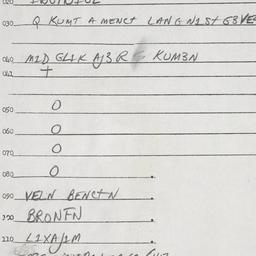 020
030 Q KUMT A MENCT LANG N1 St G3 VE
040 M1D GL1K AJ3R KUM3N
041
050 O
060 O
070 O
080 O
090 VELN BENCTN
100 BRONFN
110 L1XAJ1M